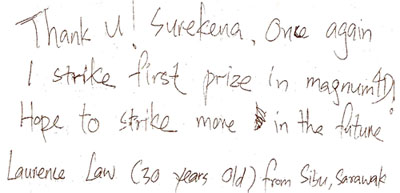 Thank U! Surekena, Once again
I strike first prize in magnum4D!
Hope to strike more in the future
Laurence Law (30 years old) from Sibu, Sarawak